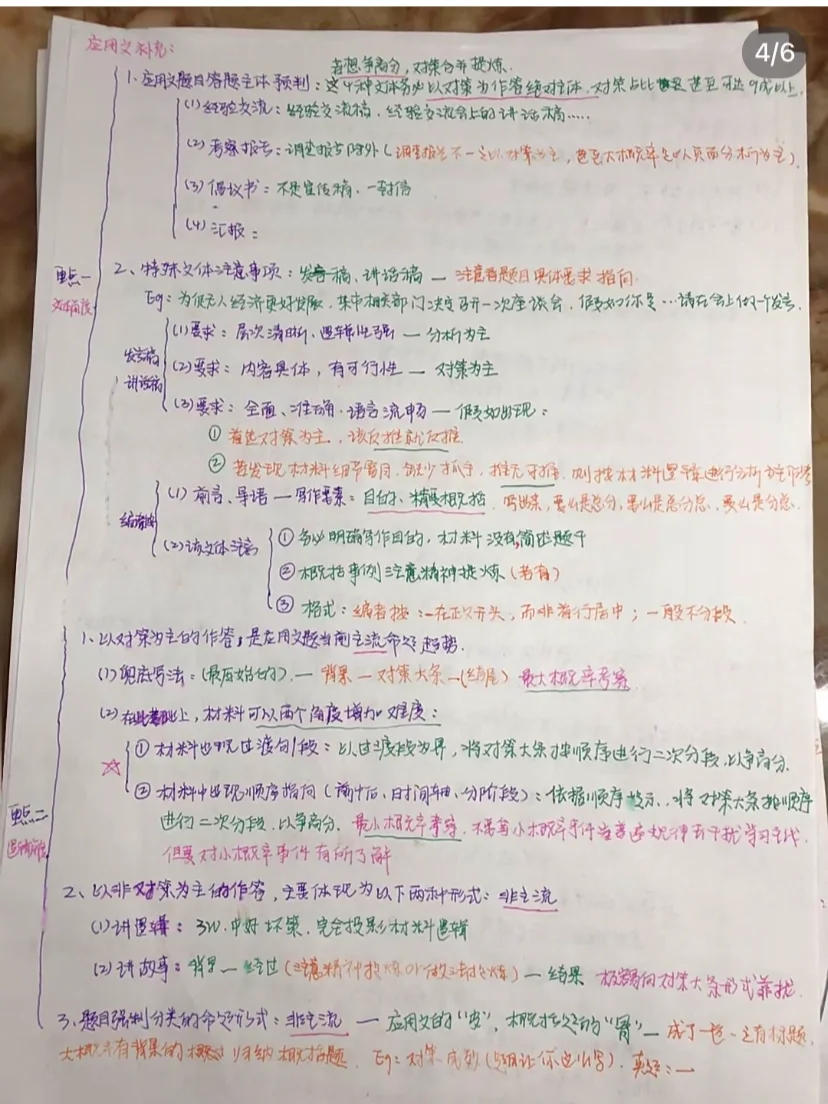 4/6
应用文补充：
若想争高分，对策合并提炼.
1. 应用文题目答题主体预判：这4种文体务必以对策为作答绝对主体. 对策占比甚至可达9成以上.
(1) 经验交流：经验交流稿, 经验交流会上的讲话稿……
(2) 考察报告：调查报告除外 (调查报告不一定以对策为主, 甚至大概率是以负面分析为主).
(3) 倡议书：不是宣传稿、一封信
(4) 汇报：
重点一
2、特殊文体注意事项：发言稿、讲话稿 — 注意看题目具体要求指向.
Eg: 为促无人经济更好发展, 集中相关部门决定召开一次座谈会, 假如你是…请在会上做一个发言.
(1)要求：层次清晰、逻辑性强 — 分析为主
发言稿
讲话稿
(2)要求：内容具体，有可行性 — 对策为主
(3)要求：全面、准确、语言流畅 — 假如出现：
① 首选对策为主., 该反推就反推.
② 若发现材料细节富余、缺少抓手、推无可推, 则按材料逻辑进行分析为主作答
(1) 前言、导语 — 写作要素：目的、精要概括. 写出来, 要么是总分, 要么是总分总、要么是分总.
编者按
(2) 该文体注意
① 务必明确写作目的, 材料没有简述题干
② 概括事例注意精神提炼 (若有)
③ 格式：编者按：一在正文开头, 而非首行居中；一般不分段.
1. 以对策为主的作答，是应用文题当前主流命题趋势.
(1) 兜底写法：(最原始的). — 背景 — 对策大条 — (结尾) 最大概率考察
(2) 在此之上, 材料可以两个角度增加难度：
① 材料出现过渡句/段：以过渡段为界, 将对策大条按顺序进行二次分段, 以争高分.
② 材料中出现顺序指向 (前中后、时间轴、分阶段)：依据顺序提示, 将对策大条按顺序
重点二
进行二次分段. 以争高分. 最小概率考察, 不要留小概率事件当普遍规律去干扰学习主线.
但要对小概率事件有所了解
2、以非对策为主的作答，主要体现为以下两种形式：非主流
(1) 讲逻辑：3W. 中好坏策. 完全投影材料逻辑
(2) 讲故事：背景 — 经过 (注意精神提炼 or 做法提炼) — 结果 极容易向对策大条形式靠拢.
3. 题目强制分类的命题形式：非主流 — 应用文的“皮”, 概括题的“骨” — 成了一色、一定有标题.